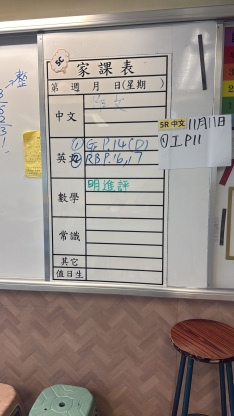 家課表
第 週 月 日(星期 )
中文
英文
① G.P.14(D)
② RB P.16,17
數學
明進評
常識
其它
值日生
SR 中文 11月11日
① I P11